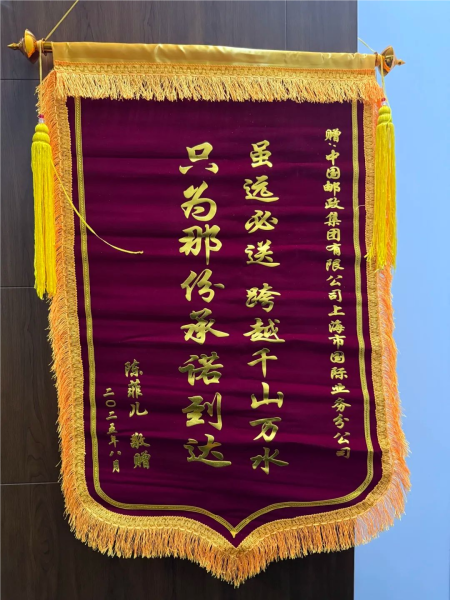 赠:中国邮政集团有限公司上海市国际业务分公司
虽远必送 跨越千山万水
只为那份承诺到达
陈菲儿 敬赠
二〇二五年八月